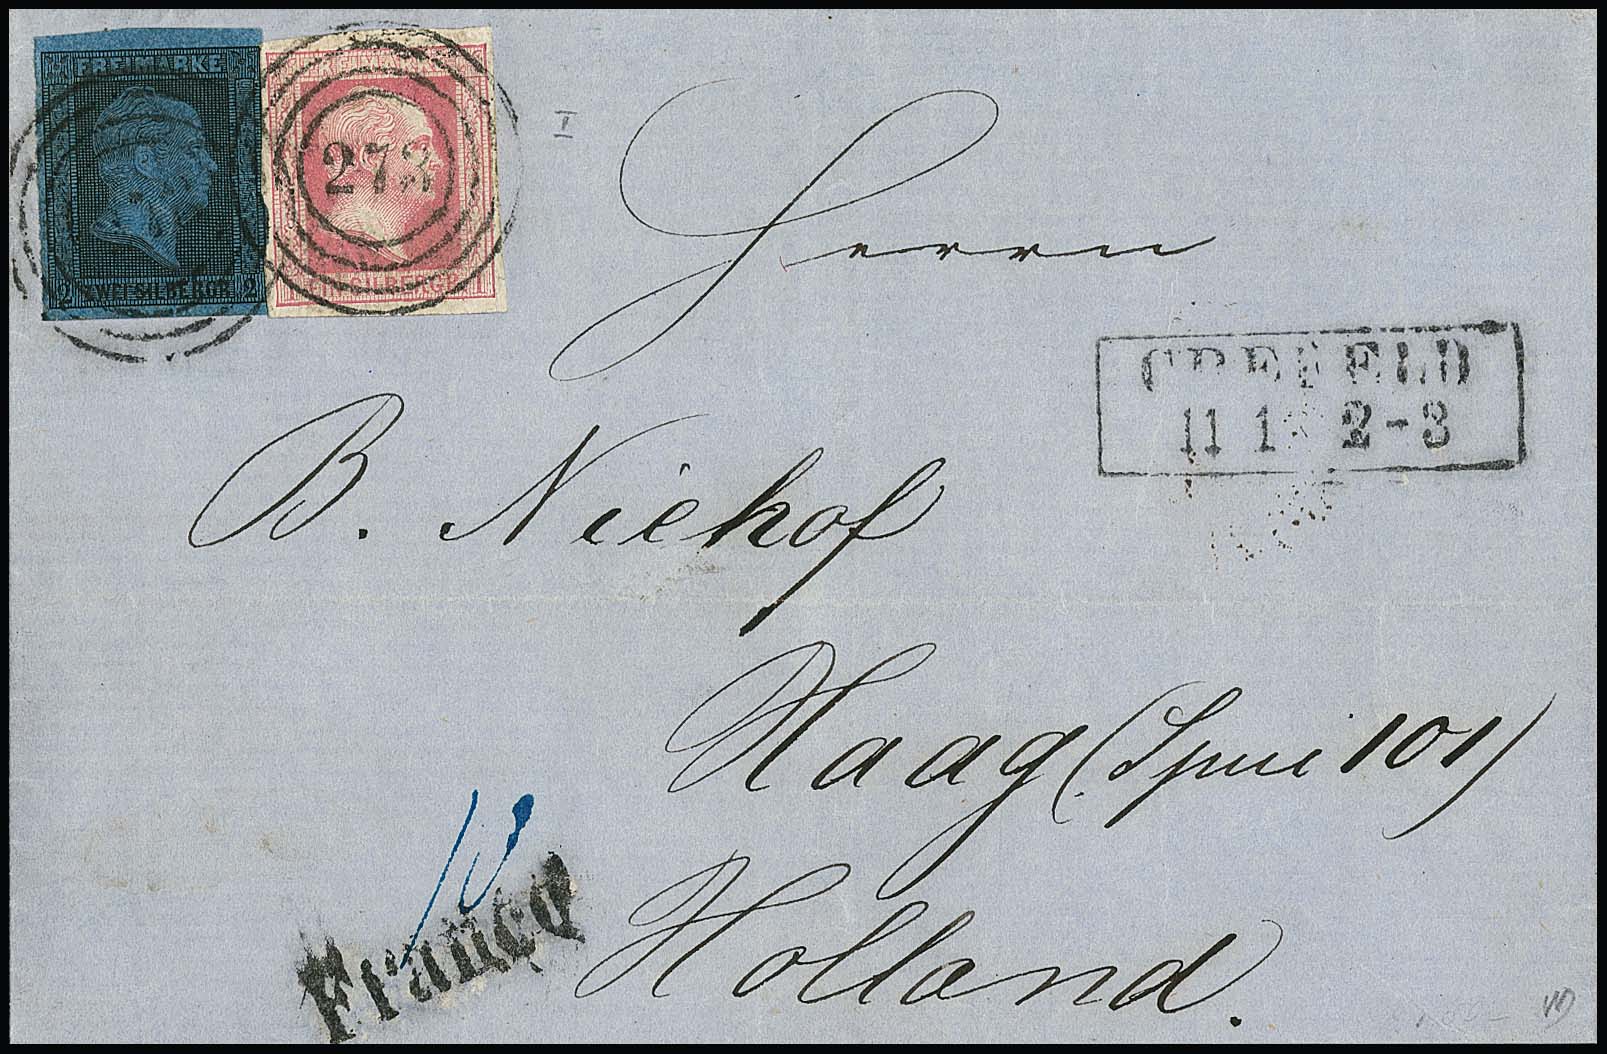 FREIMARKE
2 ZWEI SILBERGR. 2
FREIMARKE
273
1 EIN SILBERGR. 1
I
Herrn
CREFELD
11 1 2-3
B. Niehof
Haag (Spui 101)
Holland.
Franco